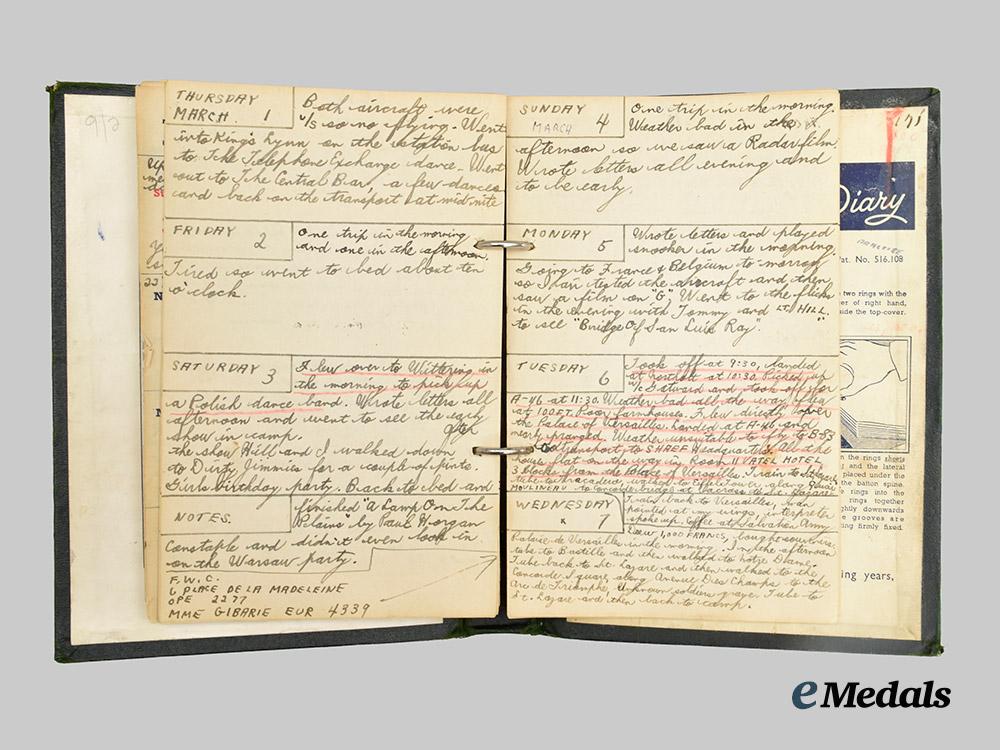 THURSDAY
MARCH 1
Both aircraft were
u/s so no flying. Went
into King's Lynn on the station bus
to The Telephone Exchange dance. Went
out to The Central Bar, a few dances
and back on the transport at mid nite
FRIDAY 2
One trip in the morning
and one in the afternoon.
Tired so went to bed about ten
o'clock.
SATURDAY 3
Flew over to Wittering in
the morning to pick up
a Polish dance band. Wrote letters all
afternoon and went to see the early
show in camp. After
the show Hill and I walked down
to Dirty Jimmies for a couple of pints.
Girls birthday party. Back to bed and
NOTES.
finished "A Lamp On The
Plains by Paul Horgan
Constable and didn't even look in
on the Warsaw party.
F.W.C.
6 PLACE DE LA MADELEINE
OPE 2277
MME GIBARIE EUR 4339
SUNDAY
MARCH 4
One trip in the morning.
Weather bad in the
afternoon so we saw a Radar film.
Wrote letters all evening and
to be early.
MONDAY 5
Wrote letters and played
snooker in the morning.
Going to France & Belgium to morrow
so I air tested the aircraft and then
saw a film on "G". Went to the flicks
in the evening with Tommy and LT. HILL.
to see "Bridge Of San Luis Ray".
TUESDAY 6
Took off at 9:30, landed
at Northolt at 10:30. Picked up
W/C Gatward and took off for
A-46 at 11:30. Weather bad all the way, flew
at 100 FT. Poor farmhouses. Flew directly over
the Palace of Versailles. Landed at A-46 and
nearly pranged. Weather unsuitable to fly to B-83
so transport to SHAEF Headquarters. All the
houses flat on the way in. Room 11 VATEL HOTEL
3 blocks from the Palace of Versailles. Train to St Lazare
tube to Trocadero, walked to Eiffel Tower, along Quai
MOULINEAU to Concorde bridge across to St. Lazare
WEDNESDAY
7
Train back to Versailles, man
pointed at my wings, interpreter
spoke up. Coffee at Salvation Army
Drew 1,000 FRANCS, bought souvenirs.
Palais de Versailles in the morning. In the afternoon
tube to Bastille and then walked to Notre Dame.
Tube back to St. Lazare and then walked to the
Concorde Square, along Avenue Des Champs to the
Arc de Triomphe, Unknown soldiers grave. Tube to
St. Lazare and then back to camp.
Diary
Pat. No. 516.108
two rings with the
er of right hand,
side the top-cover.
n the rings sheets
g and the lateral
placed under the
the batton spine.
e rings into the
rings together
ghtly downwards
e grooves are
ing firmly fixed.
ing years,
eMedals